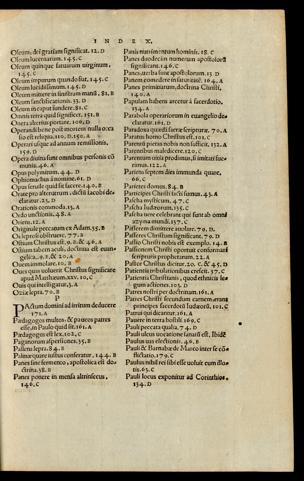 INDEX
Oleum, dei gratiam significat. 12. D
Oleum lucernarum. 145. C
Oleum quinque fatuarum uirginum,
145. C
Oleum impurum quando fiat. 145. C
Oleum lucidissimum. 145. D
Oleum mittere in sinistram manū. 81. B
Oleum sanctificationis. 33. D
Oleum in caput fundere. 81. C
Omnis terra quid significet. 151. B
Opera alterius portare. 109. D
Operandi bene post mortem nulla occa
sio est reliqua. 110. D. 150. A
Operari usque ad annum remissionis,
159. D
Opera diuina sunt omnibus personis cō
munia. 46. A
Opus polymitum. 44. D
Ophiomachus
Opus feriale quid sit facere. 140. B
Oratio pro
claratur. 23. D
Oratio matutina. 23. A
Ordo unctionis. 48. A
Oriens. 12. A
Originale peccatum ex Adam. 55. B
Os leprosi obstruere. 77. B
Ostium Christus est. 9. B & 46. A
Ostium tabernaculi, doctrina est euan-
gelica. 9. B. & 20. D
Oues immolare. 10. B
Oues quas uoluerit Christus significare
apud Matthaeum.
Ouis qui intelligatur. 3. A
Oziae lepra. 70. B
P
PActum domini ad irritum deducere
171. A
Pædagogus multos & pauces patres
esse, in Paulo quid sit. 161. A
Pædagogus est lex. 102. C
Paganorum aspersiones. 35. B
Pallens lepra. 84. B
Palmæ quare iustus conseratur. 144. B
Panes sine fermento, apostolica est do-
ctrina. 38. B
Panes ponere in mensa altrinsecus,
146. C
Panis nutrimentum hominis. 18. C
Panes duodecim numerum apostolorū
significant. 146. C
Panes azymi sunt apostolorum. 13. D
Panem comedere in saturitate. 164. A
Panes primitiarum, doctrina Christi,
140. A
Papulam habens arcetur à sacerdotio,
134. A
Parabola operariorum in euangelio de-
claratur. 161. D
Paradoxa quædā sacræ scripturæ. 70. A
Paratus homo Christus est. 101. C
Parentū pietas nobis non sufficit. 132. A
Parentibus maledicere. 120. C
Parentum uitia prodimus, si imitati fue-
rimus. 122. A
Parientis septem dies immunda quare,
66. C
Parietes domus. 84. B
Participes Christi facti sumus. 43. A
Pascha mysticum. 47. C
Pascha Iudæorum. 135. C
Pascha uere celebrant qui sunt ab omni
azyma mundi. 137. C
Passerem dimittere auolare. 79. D
Passeres Christum significare. 79. D
Passio Christi nobis est exemplo. 14. B
Passionem Christi oportuit conformari
scripturis prophetarum. 22. A
Pastor Christus dicitur. 20. C. & 45. D
Patientia tribulationibus crescit. 37. C
Patientia Christianis, quod ethnicis le-
gum actiones. 103. D
Patres nostri per doctrinam. 161. A
Patres Christi secundum carnem erant
principes sacerdotū Iudæorū. 101. C
Patrui qui dicantur. 161. A
Pauere in terra hostili. 169. C
Pauli peccata qualia. 74. D
Pauli uleus uocatione sanatū est, ibidē
Paulus uas electionis. 46. B
Pauli & Barnabæ de Marco inter se cō-
flictatio. 179. C
Paulus nihil rei sibi esse uoluit cum illo-
tis. 63. C
Pauli locus exponitur ad Corinthios.
134. D